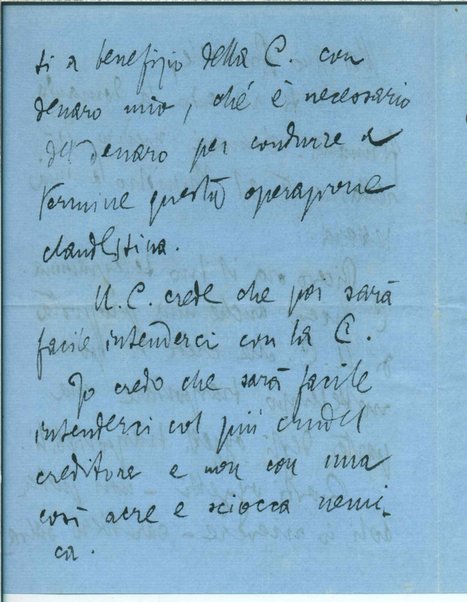 ti a benefizio della C. con
denaro mio, ché è necessario
del denaro per condurre a
termine questa operazione
clandestina.
Il C. crede che poi sarà
facile intenderci con la C.
Io credo che sarà facile
intenderci col più crudel
creditore e non con una
così acre e sciocca nemi-
ca.